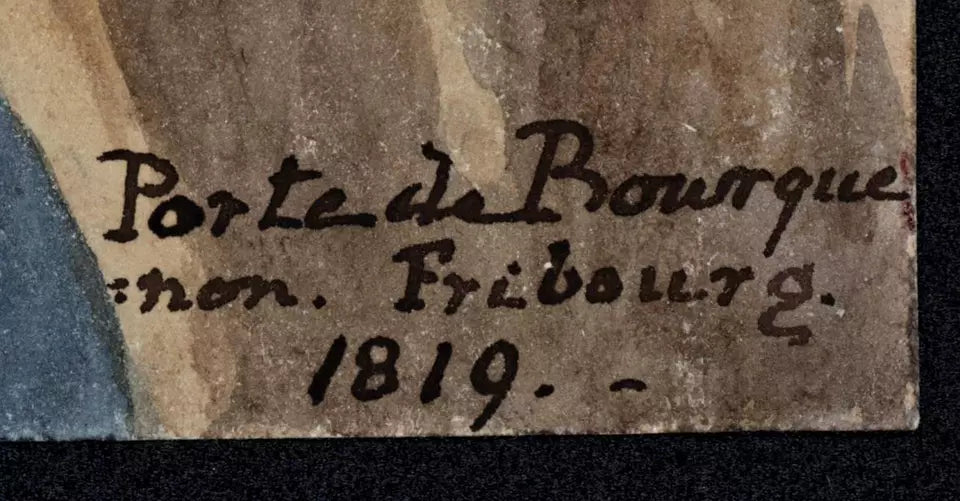 Porte de Bourgue
:non. Fribourg.
1819. -